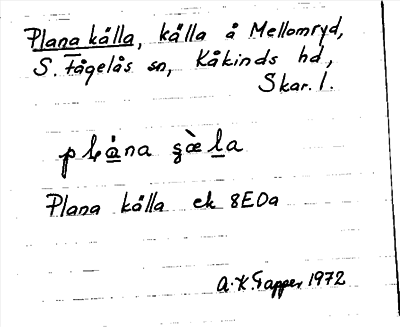 Plana källa, källa å Mellomryd,
S. Fågelås sn, Kåkinds hd,
Skar. l.
Plana källa ek 8E0a
1972